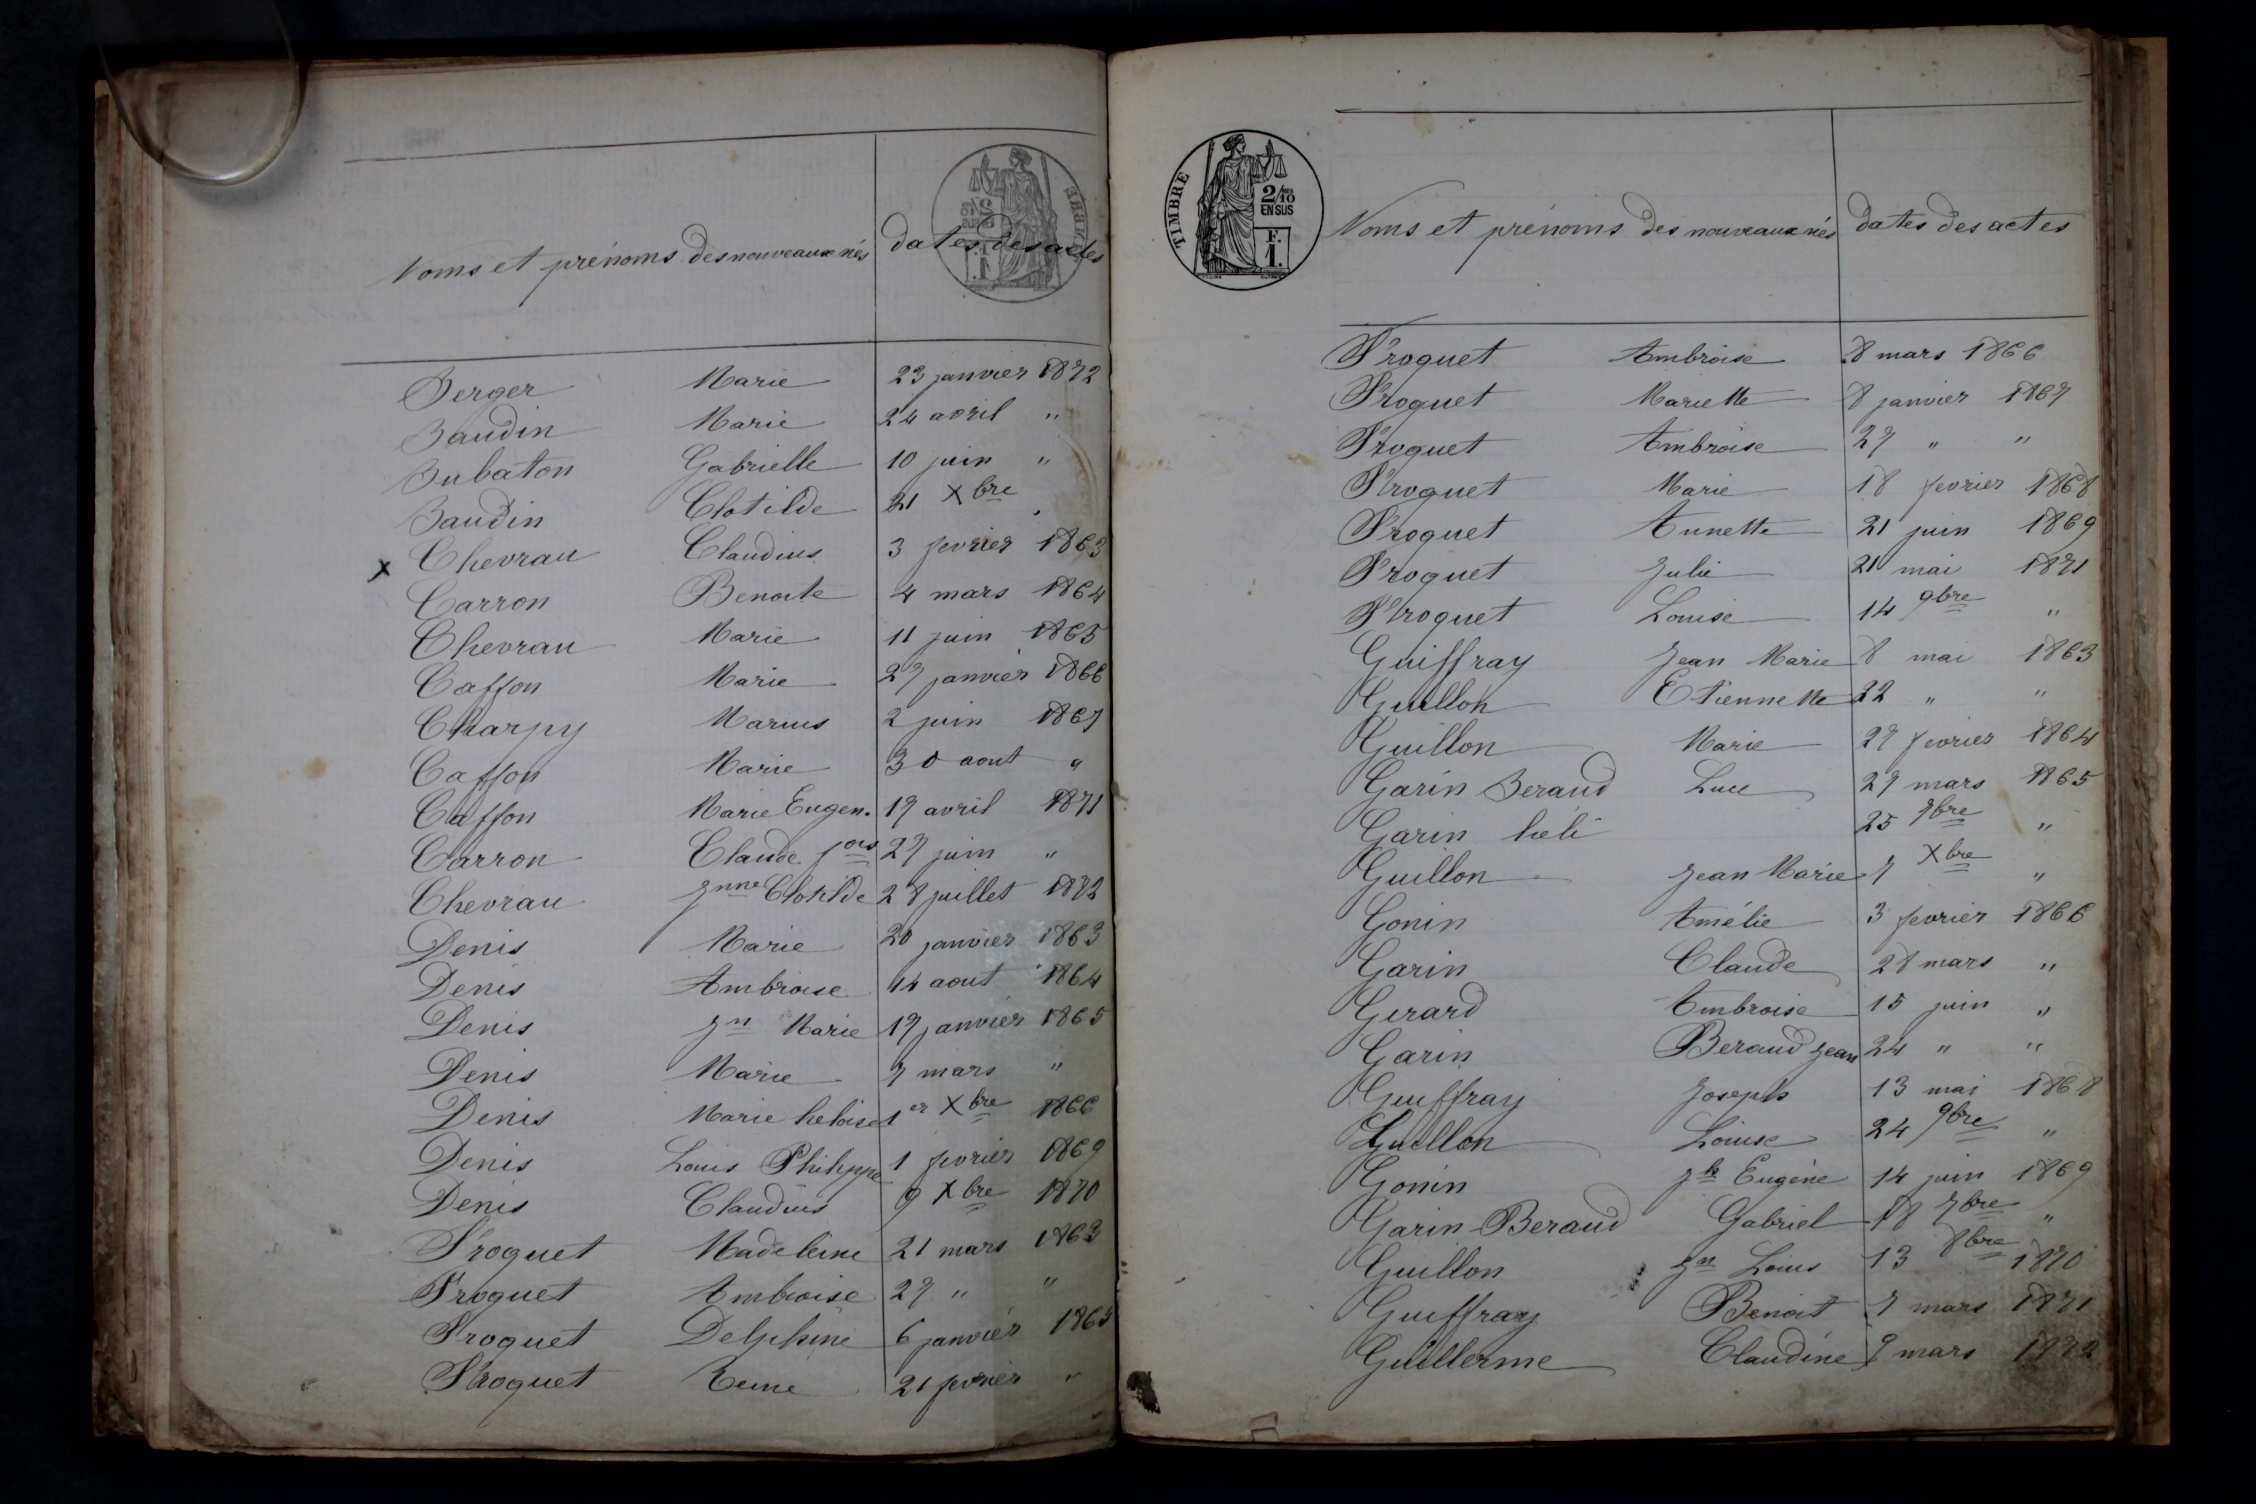 Noms et prénoms des nouveaux nés dates des actes
Berger Marie 23 janvier 1872
Baudin Marie 24 avril "
Bubaton Gabrielle 10 juin "
Baudin Clotilde 21 Xbre "
x Chevrau Claudius 3 fevrier 1863
Carron Benoite 4 mars 1864
Chevrau Marie 11 juin 1865
Caffon Marie 27 janvier 1866
Charpy Marius 2 juin 1867
Caffon Marie 30 aout "
Caffon Marie Eugen. 17 avril 1871
Carron Claude fois 27 juin "
Chevrau Jnne Clotilde 28 juillet 1872
Denis Marie 20 janvier 1863
Denis Ambroise 14 aout 1864
Denis Jn Marie 17 janvier 1865
Denis Marie 7 mars "
Denis Marie heloise 1er Xbre 1866
Denis Louis Philippe 1 fevrier 1869
Denis Claudius 9 Xbre 1870
Froquet Madeleine 21 mars 1863
Froquet Ambroise 27 " "
Froquet Delphine 6 janvier 1865
Froquet Reine 21 fevrier "
TIMBRE
2/10 EN SUS
F. 1.
Noms et prénoms des nouveaux nés dates des actes
Froquet Ambroise 8 mars 1866
Froquet Mariette 8 janvier 1867
Froquet Ambroise 27 " "
Froquet Marie 18 fevrier 1868
Froquet Annette 21 juin 1869
Froquet Julie 21 mai 1871
Froquet Louise 14 9bre "
Guiffray Jean Marie 8 mai 1863
Guillon Etiennette 22 " "
Guillon Marie 27 fevrier 1864
Garin Beraud Luce 27 mars 1865
Garin 25 7bre "
Guillon Jean Marie 7 Xbre "
Gonin Amélie 3 fevrier 1866
Garin Claude 28 mars "
Gerard Ambroise 15 juin "
Garin Beraud Jean 24 " "
Guiffray Joseph 13 mai 1868
Guillon Louise 24 9bre "
Gonin Jh Eugène 14 juin 1869
Garin Beraud Gabriel 18 7bre "
Guillon Jn Louis 13 8bre 1870
Guiffray Benoit 7 mars 1871
Guillerme Claudine 9 mars 1872